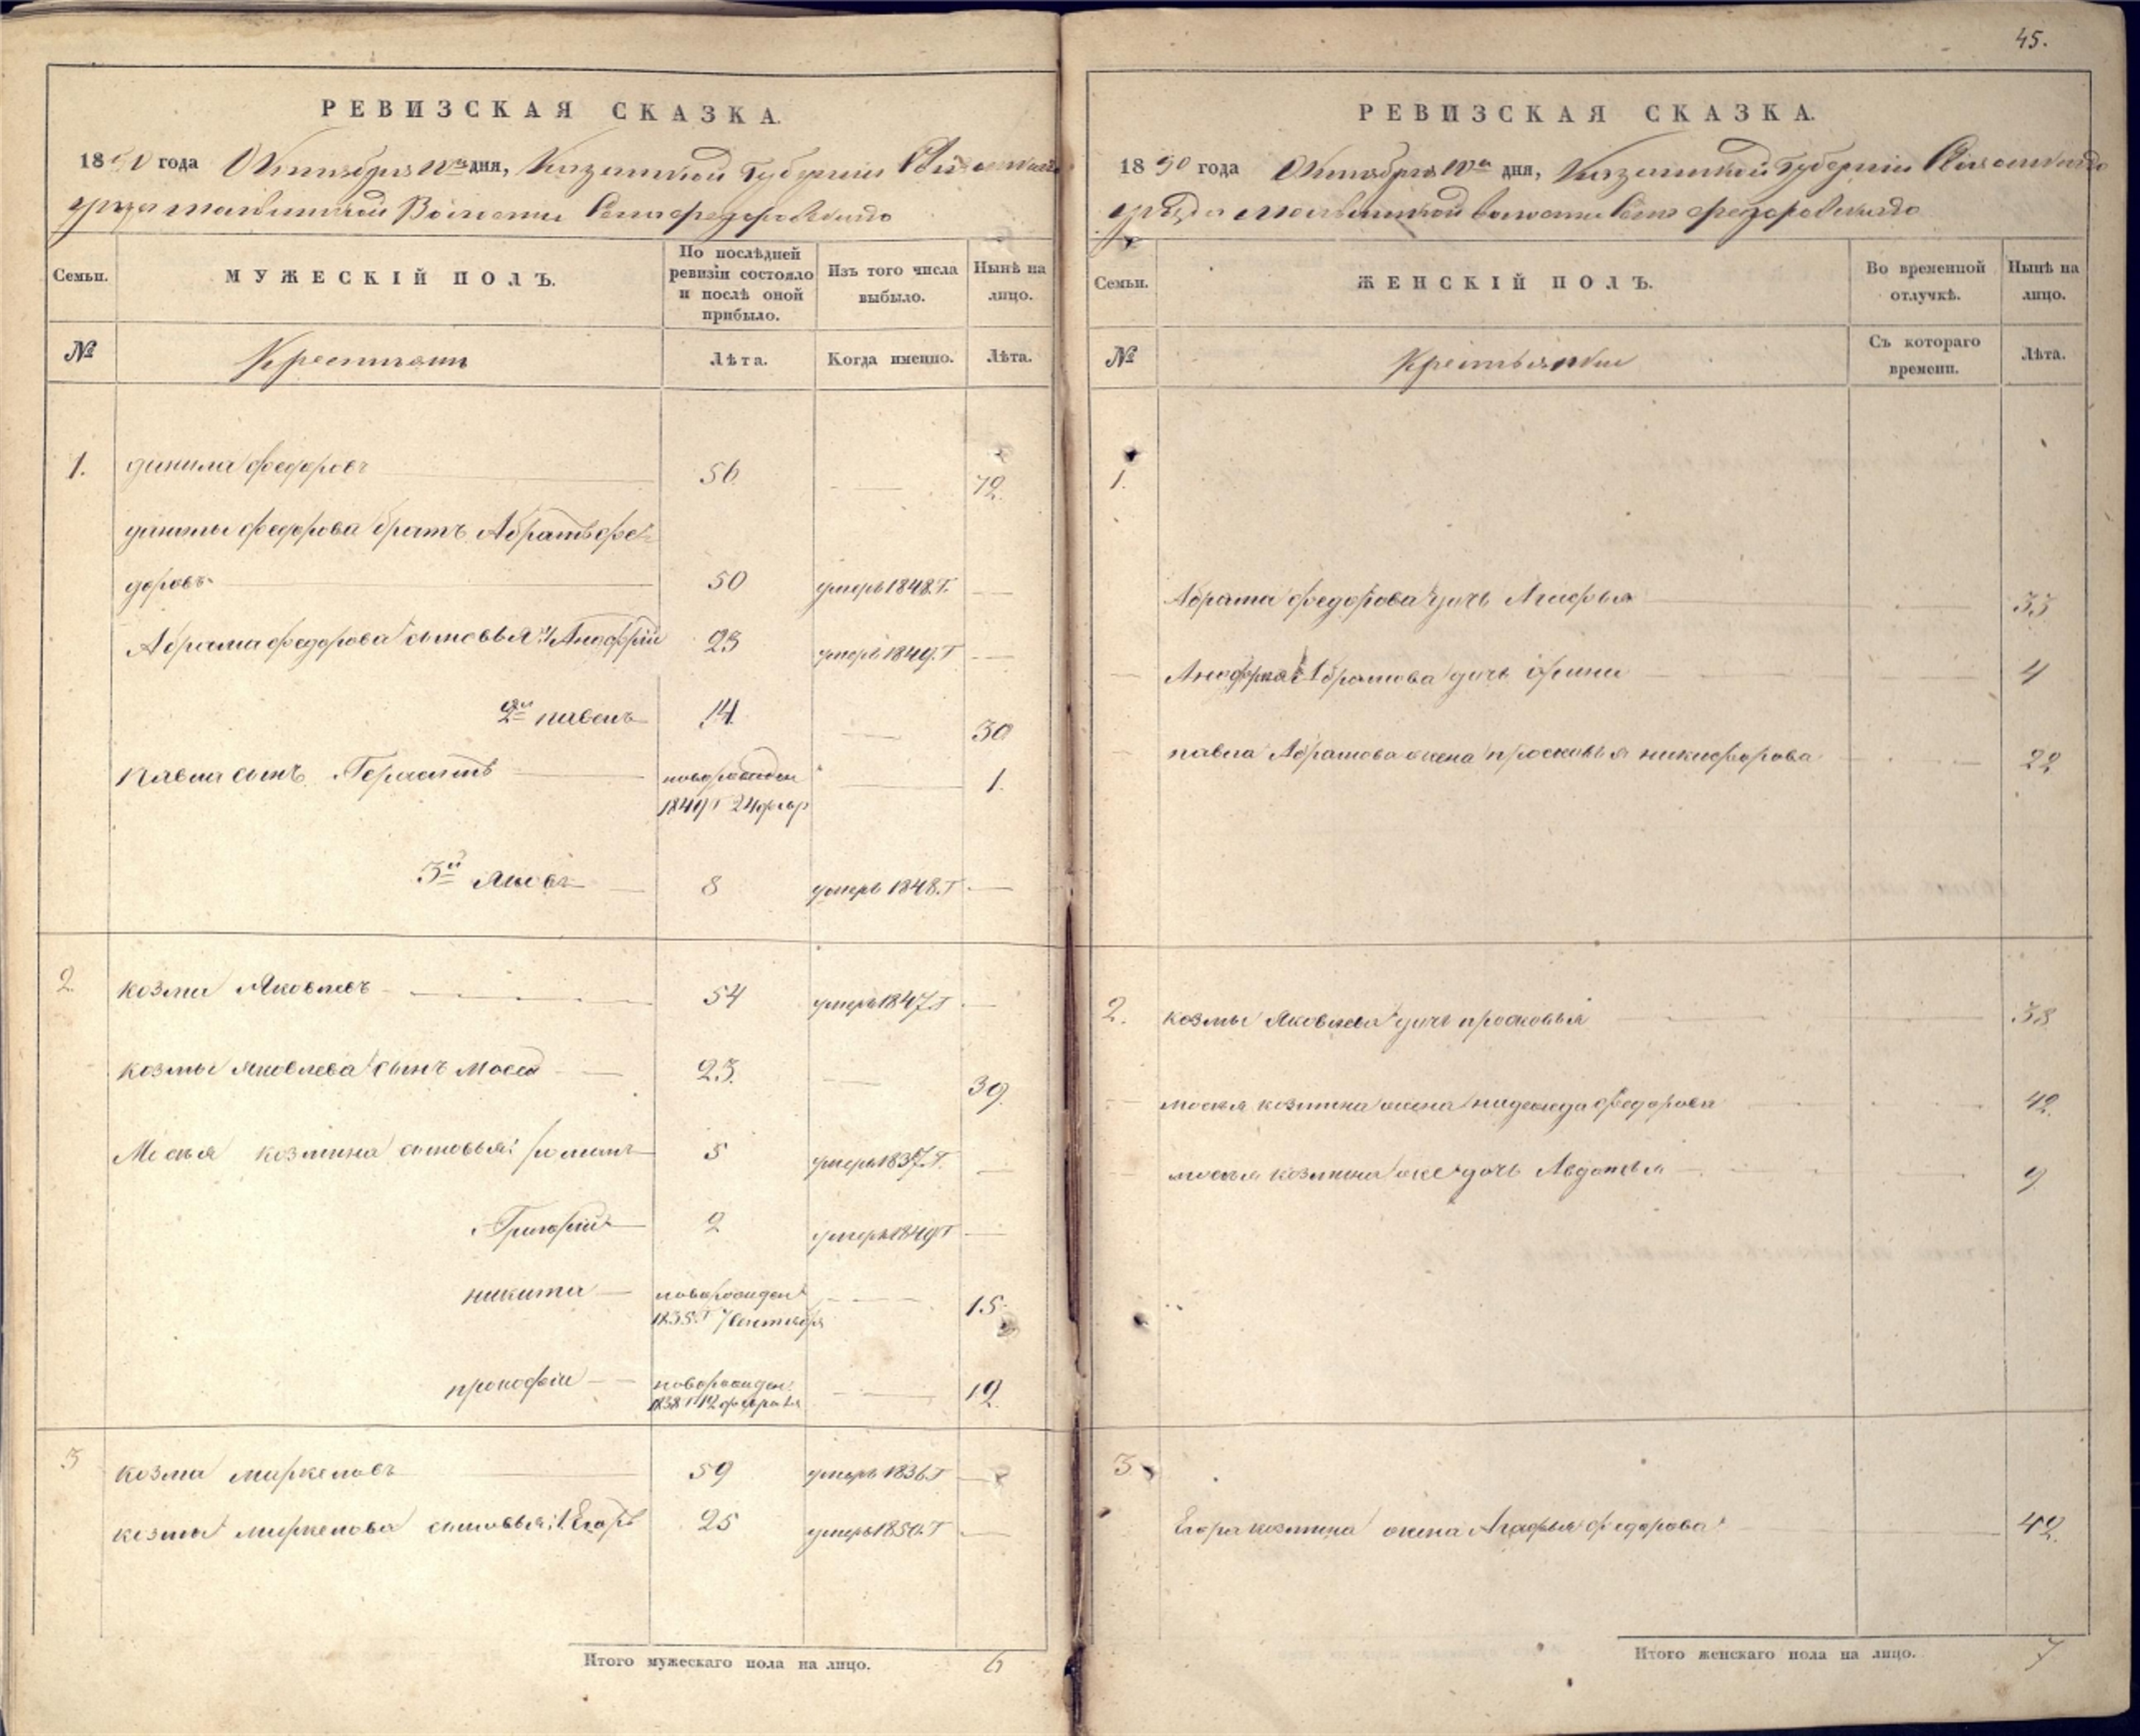 РЕВИЗСКАЯ СКАЗКА.
1850 года Октября 10го дня, Казанской Губерніи
уѣзда Волости Села федоровскаго
Семьи.
МУЖЕСКІЙ ПОЛЪ.
По послѣдней ревизіи состояло и послѣ оной прибыло.
Изъ того числа выбыло.
Нынѣ на лицо.
№
Крестьянъ
Лѣта.
Когда именно.
Лѣта.
1. данила федоровъ 56 72.
данилы федорова братъ Абрамъ фе-
доровъ 50 умеръ 1848.Г.
Абрама федорова сыновья: 1 Анофрій 23 умеръ 1849.Г
2й павелъ 14 30
павла сынъ Герасимъ новорожден 1.
1849 Г 24 февр
3й яковъ 8 умеръ 1848.Г
2 козма Яковлевъ 54 умеръ 1847.Г
козмы яковлева сынъ Мосей 23. 39.
Мосея козмина сыновья: романъ 5 умеръ 1837.Г.
Григорій 2 умеръ 1849 Г
никита новорожден 15.
1835.Г 7 Сентября
прокофій новорожден. 12.
1838 Г 12 февраля
3 козма маркеловъ 59 умеръ 1836.Г
козмы маркелова сыновья: 1. Егоръ 25 умеръ 1850.Г
Итого мужескаго пола на лицо. 6
45.
РЕВИЗСКАЯ СКАЗКА.
1850 года Октября 10го дня, Казанской Губерніи
уѣзда волости Села федоровскаго
Семьи.
ЖЕНСКІЙ ПОЛЪ.
Во временной отлучкѣ.
Нынѣ на лицо.
№
Крестьянки
Съ котораго времени.
Лѣта.
1.
Абрама федорова дочь Агафья 33
Анофрея Абрамова дочь Орина 4
павла Абрамова жена просковья никифорова 22
2. козмы Яковлева дочь просковья 38
мосея козмина жена надежда федорова 42.
мосея козмина же дочь Авдотья 9
3
Егора козмина жена Агафья федорова 42.
Итого женскаго пола на лицо. 7